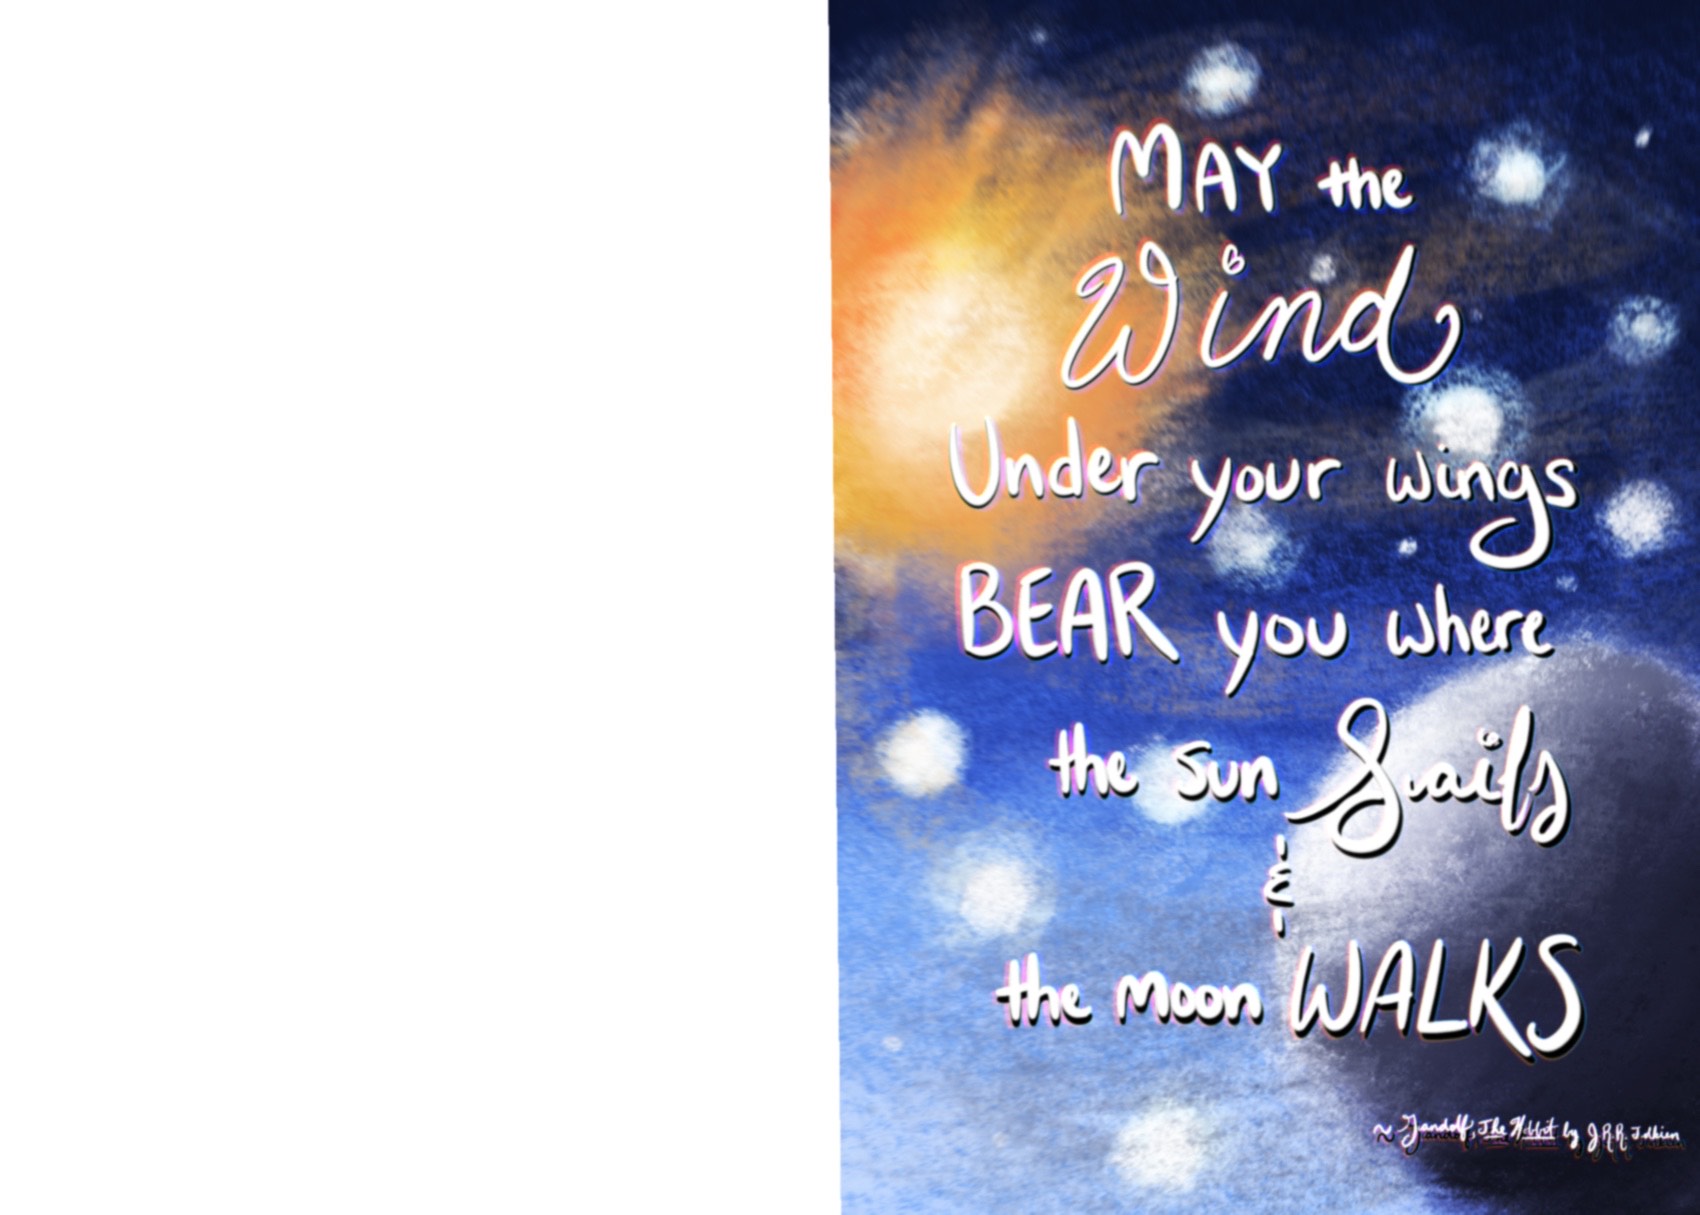 MAY the
Wind
Under your wings
BEAR you where
the sun Sails
&
the Moon WALKS
~ Gandalf, The Hobbit by J.R.R. Tolkien